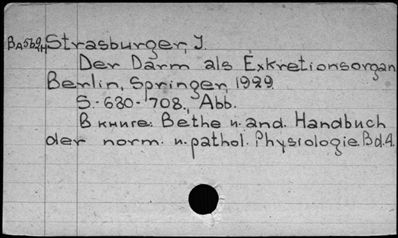 BA569,H Strasburger, J.
Der Darm als Exkretionsorgan
Berlin, Springer, 1929.
S.-680-708., Abb.
В книге: Bethe u. and. Handbuch
der norm. u. pathol. Physiologie. Bd.4.